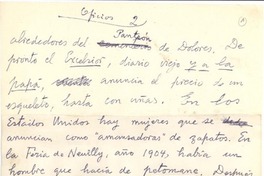 Oficios 2
Panteón
alrededores del cementerio de Dolores. De
pronto el Excelsior, diario viejo y a la
papá, anuncia el precio de un
esqueleto, hasta con uñas. En los
Estados Unidos hay mujeres que se
anuncian como "amansadoras" de zapatos. En
la Feria de Neuilly, año 1904, había un
hombre que hacía de petomane, Después